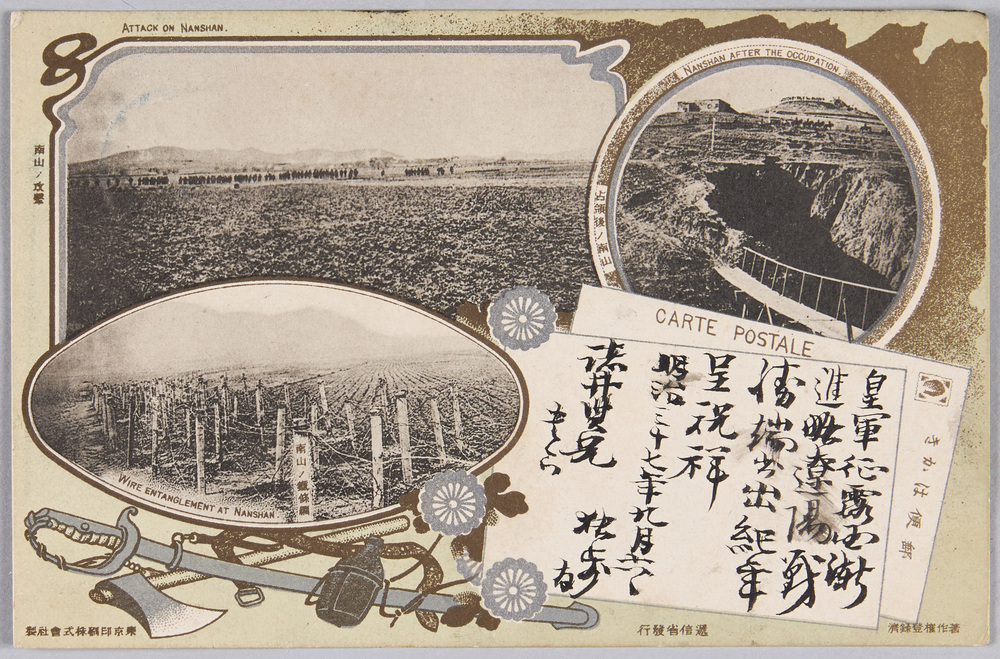 ATTACK ON NANSHAN.
南山ノ攻撃
NANSHAN AFTER THE OCCUPATION.
占領後ノ南山
WIRE ENTANGLEMENT AT NANSHAN.
南山ノ鐵條網
CARTE POSTALE
郵便はかき
皇軍征露西漸
進略遼陽戦
勝端出紀年
呈祝祥
明治三十七年九月
諸井賢兄
著作權登録濟
遞信省發行
東京印刷株式會社製